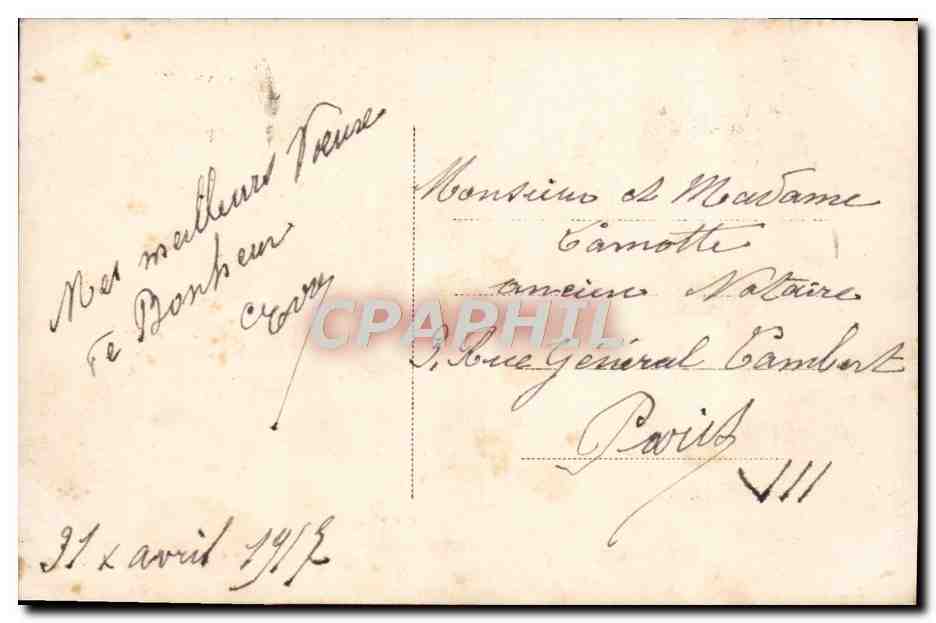 Mes meilleurs Voeux
de Bonheur
Monsieur et Madame
Lamotte
ancien Notaire
3, Rue Général Lambert
Paris
VII
31 x avril 1917
CPARHIL